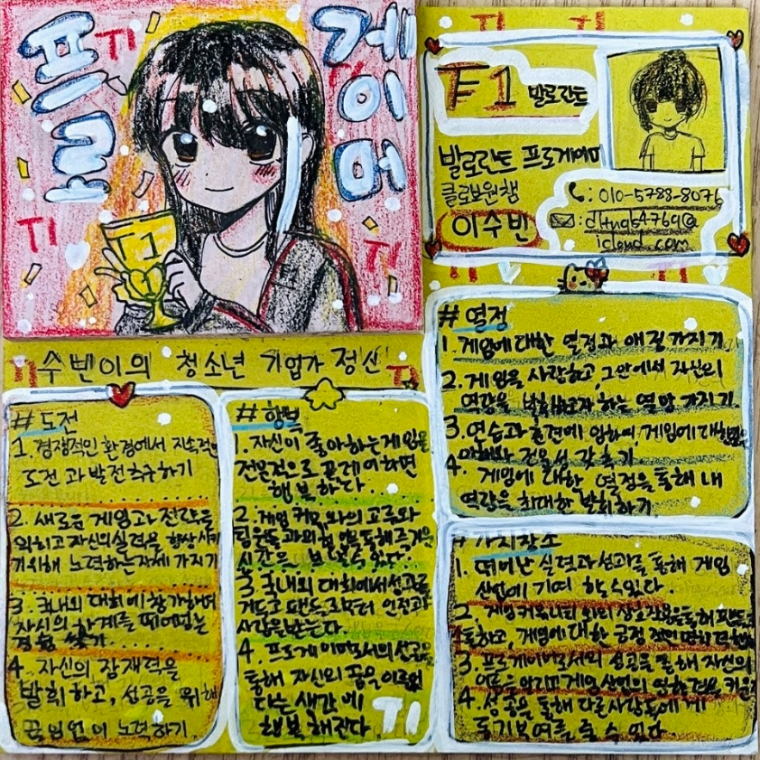 프로
게이머
T1
T1
T1
T1
T1 발로란트
발로란트 프로게이머
클로보원챔
이수빈
: 010-5788-8076
icloud.com
수빈이의 청소년 기업가 정신
# 도전
1. 경쟁적인 환경에서 지속적
도전과 발전추구하기
2. 새로운 게임과 전략을
익히고 자신의실력을 향상시키
기위해 노력하는자세 가지기
3. 국내외 대회에 참가하며
자신의 한계를 뛰어넘는
경험 쌓기
4. 자신의 잠재력을
발휘하고, 성공을 위해
끊임없이 노력하기.
# 행복
1. 자신이 좋아하는게임을
전문적으로 플레이하면
행복하다.
2. 게임 커뮤 와의 교류와
시간을 보낼수 있다.
3. 국내외 대회에서성과를
거두고 팬드로부터 인정과
사랑을받는다
4. 프로게이머로서의 성공을
통해 자신의 꿈을 이루었
다는 생각에
행복해진다.
T1
# 열정
1. 게임에대한 열정과 애정 가지기
2. 게임을 사랑하고, 그안에서 자신의
역량을 발휘하고자 하는 열망 가지기.
3. 연습과 훈련에 임하며 게임에 대한
이해와 전문성 갖추기
4. 게임에 대한 열정을 통해 내
역량을 최대한 발휘하기.
# 가치창소
1. 뛰어난 실력과성과를 통해 게임
산업에 기여 할수있다
2. 게임커뮤니티 와의 상호작용을통해 팬드과
소통하고, 게임에대한 긍정적인
3. 프로게이머로서의 성공을 통해 자신의
이름을 알리고 게임산업의 영향력을 키운다
4. 성공을 통해 다른사람들에게
동기부여를 줄 수 있다.